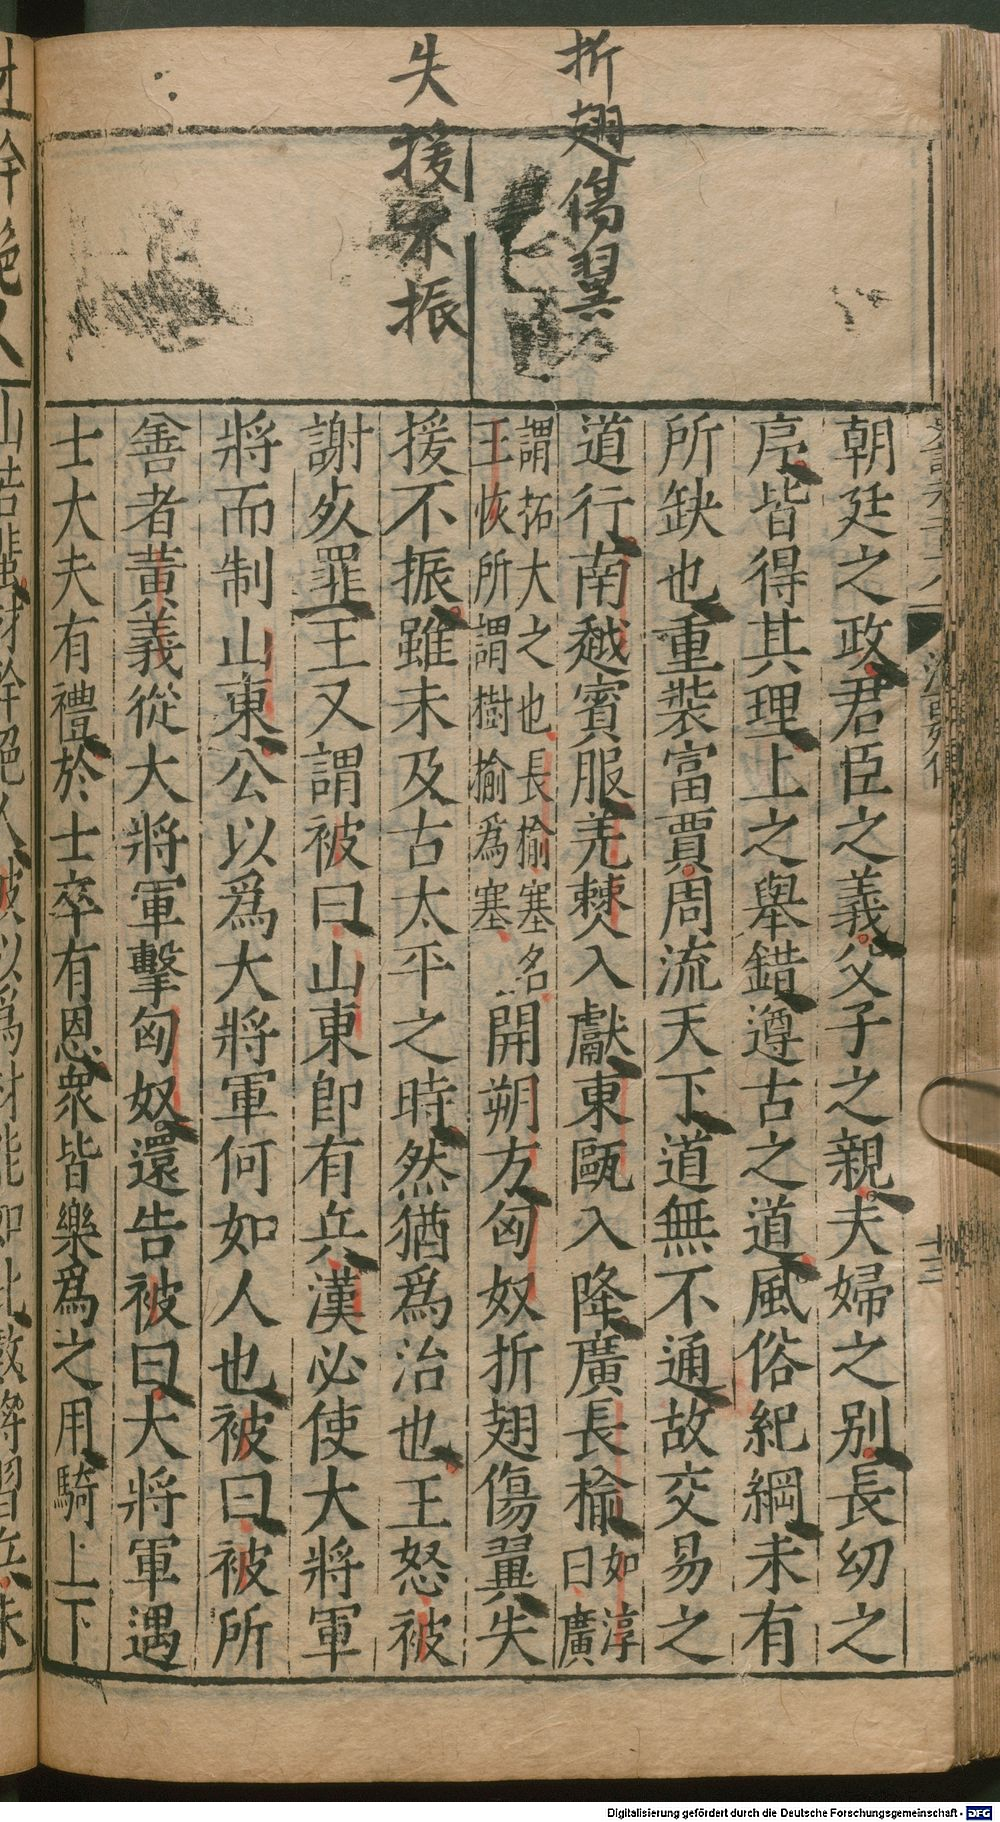 折翅傷翼
失援不振
朝廷之政君臣之義父子之親夫婦之別長幼之
序皆得其理上之舉錯遵古之道風俗紀綱未有
所缺也重裝富賈周流天下道無不通故交易之
道行南越賓服羌僰入獻東甌入降廣長榆如淳曰廣
謂拓大之也長榆塞名王恢所謂樹榆為塞開朔方匈奴折翅傷翼失
援不振雖未及古太平之時然猶爲治也王怒被
謝死罪王又謂被曰山東即有兵漢必使大將軍
將而制山東公以爲大將軍何如人也被曰被所
善者黃義從大將軍擊匈奴還告被曰大將軍遇
士大夫有禮於士卒有恩衆皆樂爲之用騎上下
山若蜚材幹絕人被以爲材能如此數將習兵未
材幹絕人
十三
Digitalisierung gefördert durch die Deutsche Forschungsgemeinschaft - DFG